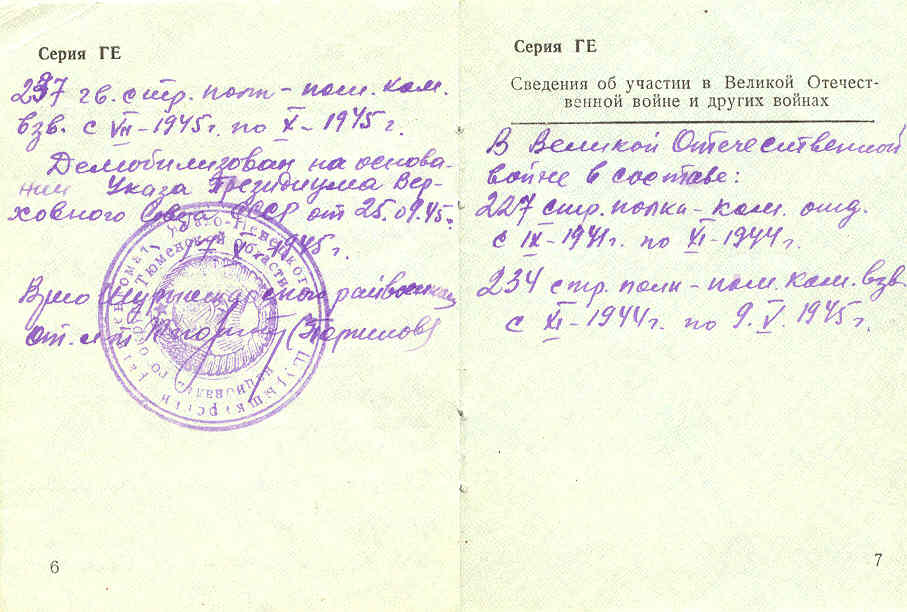 Серия ГЕ
237 гв. стр. полк – пом. ком.
взв. с VII – 1945 г. по X – 1945 г.
Демобилизован на основа-
нии Указа Президиума Вер-
ховного Совета СССР от 25.09.45г.
1945 г.
Врио
6
Серия ГЕ
Сведения об участии в Великой Отечест-
венной войне и других войнах
В Великой Отечественной
войне в составе:
227 стр. полка – ком. отд.
с IX – 1941 г. по XI – 1944 г.
234 стр. полк – пом. ком. взв.
с XI – 1944 г. по 9. V. 1945 г.
7